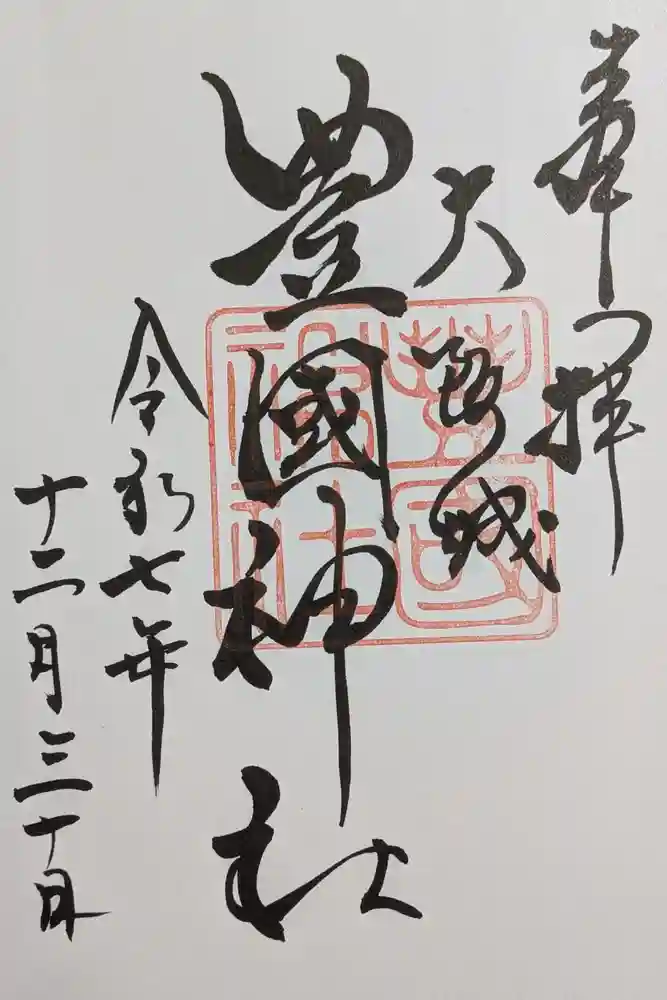 奉拝
大阪城
豊國神社
令和七年
十二月三十日